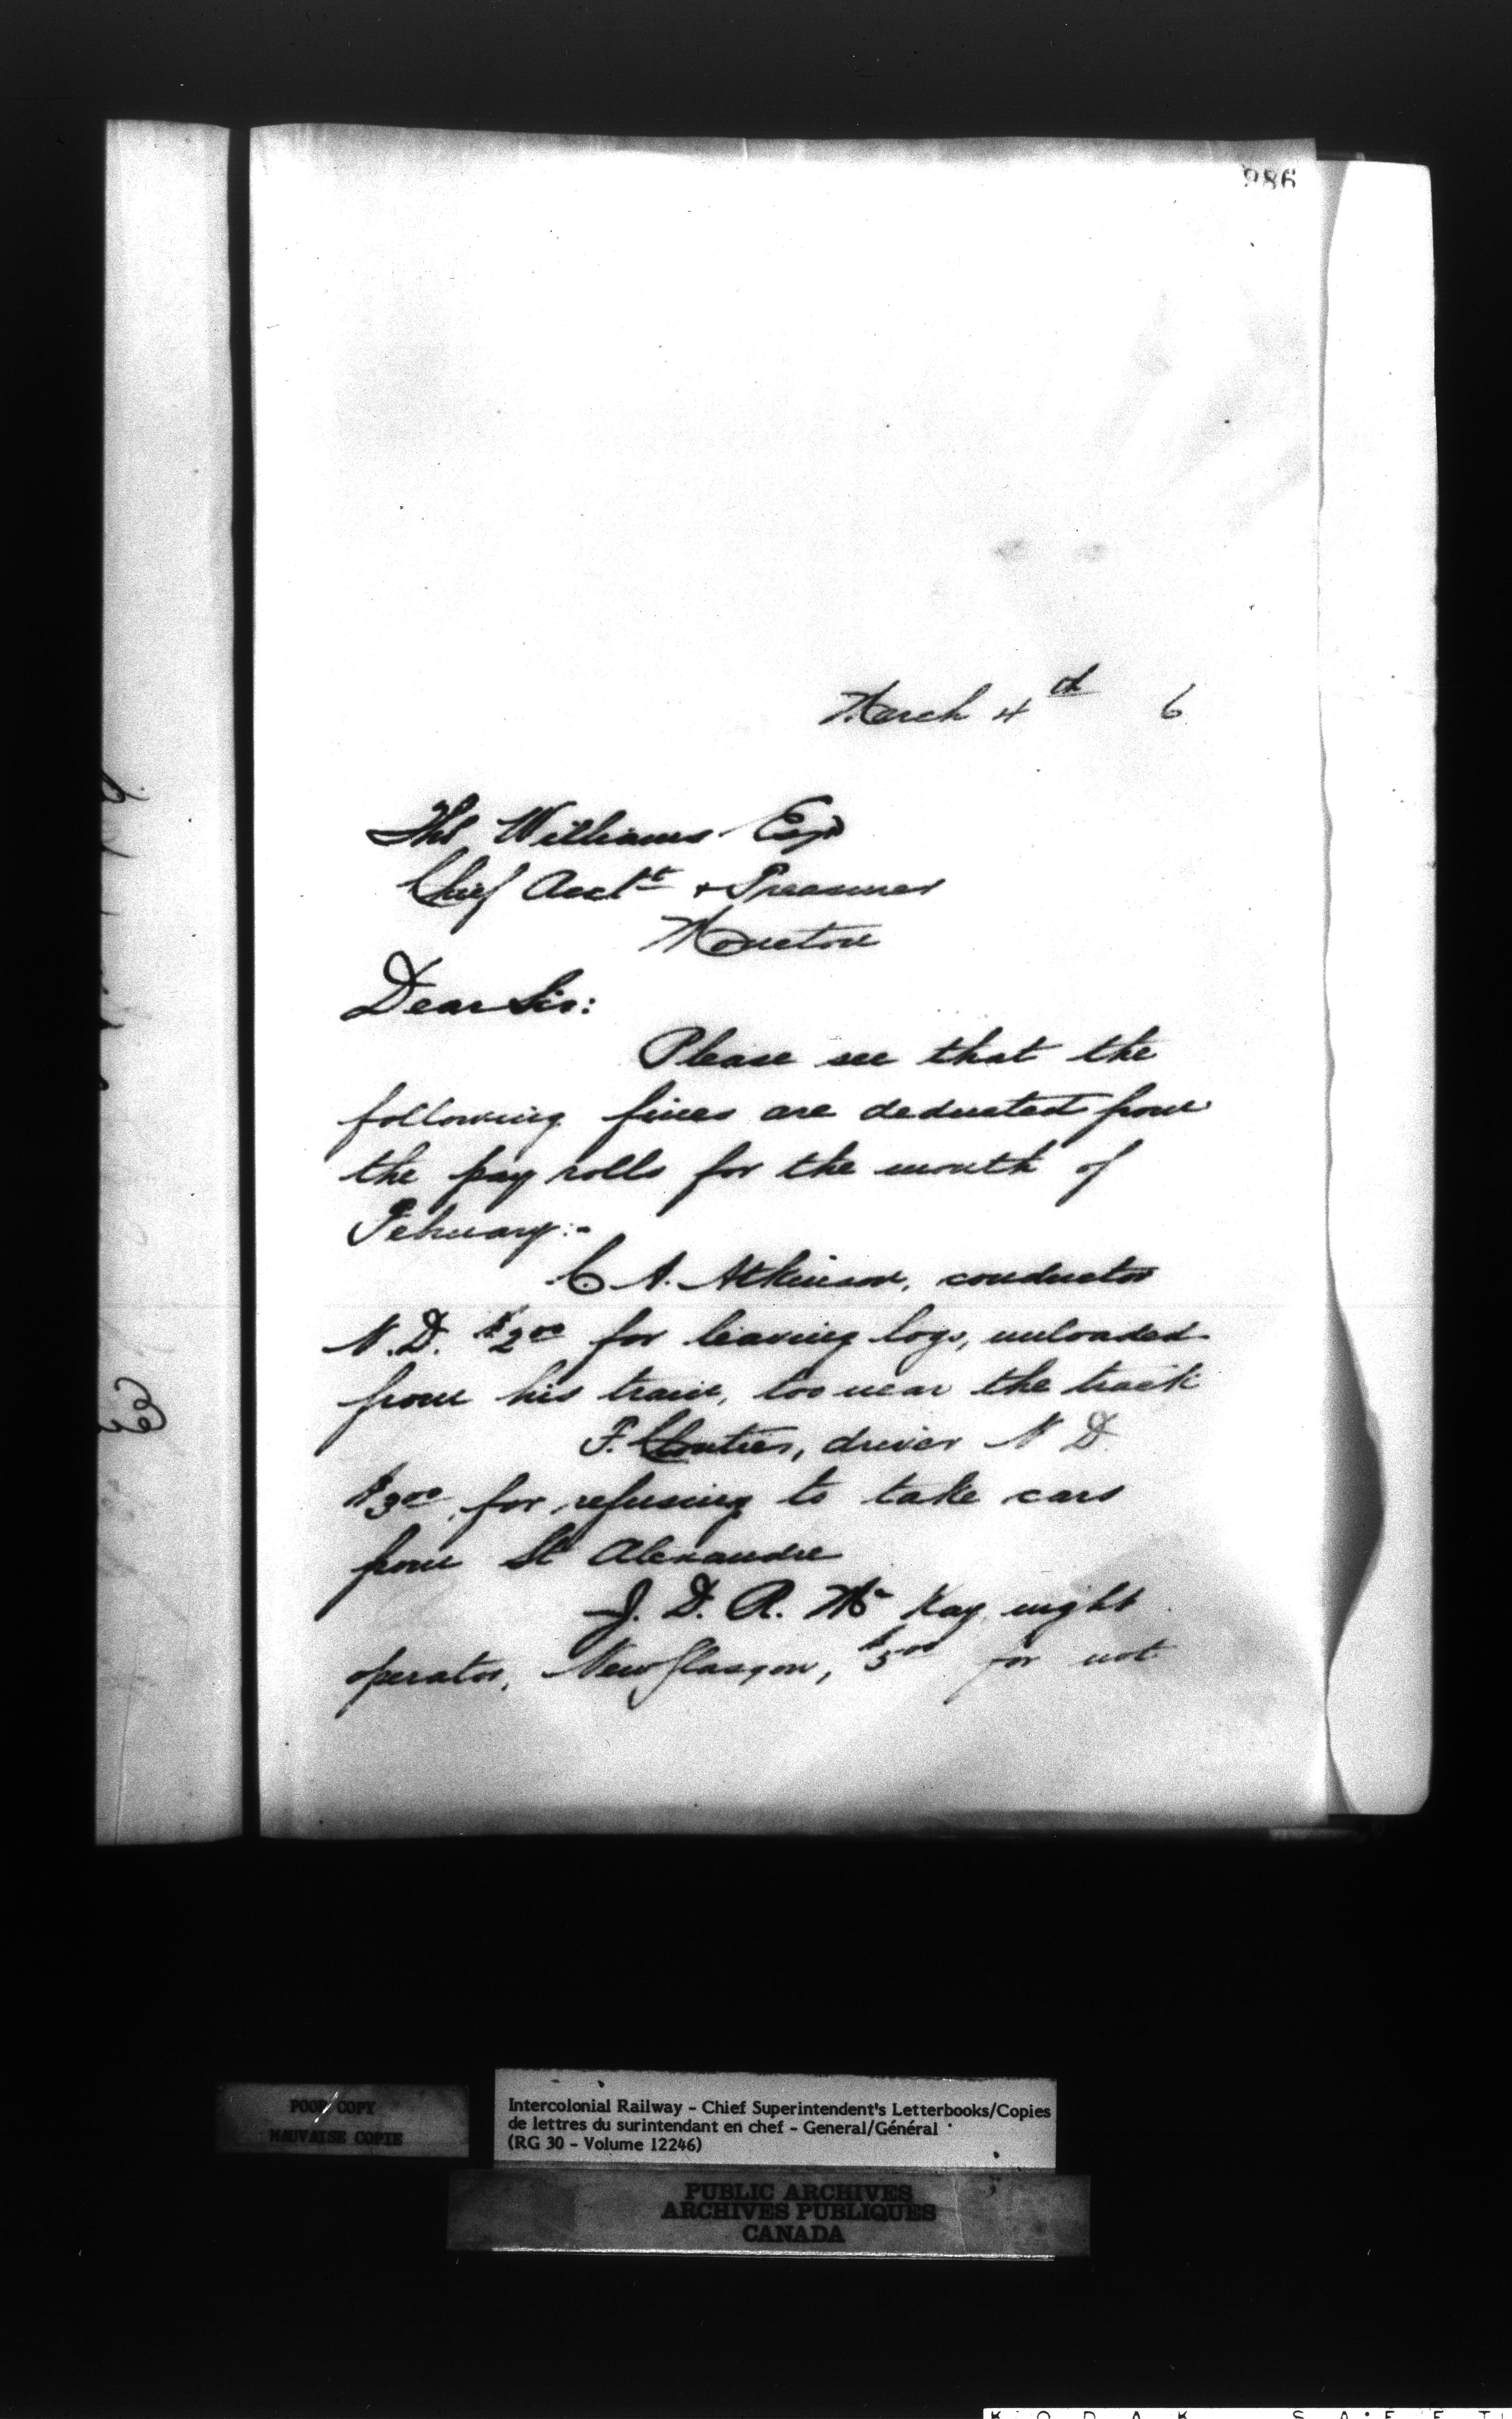 986
March 4th 6
Thos Williams Esqr
Chief Acctt & Treasurer
Moncton
Dear Sir:
Please see that the
following fines are deducted from
the pay rolls for the month of
February:-
C. A. Atkinson, conductor
N. D. $200 for leaving logs, unloaded
from his train, too near the track
F. Cloutier, driver N D
$300, for refusing to take cars
from St Alexandre
J. D. R. Mc Kay, night
operator, New Glasgow, $500 for not
POOR COPY
MAUVAISE COPIE
Intercolonial Railway - Chief Superintendent's Letterbooks/Copies
de lettres du surintendant en chef - General/Général
(RG 30 - Volume 12246)
PUBLIC ARCHIVES
ARCHIVES PUBLIQUES
CANADA
KODAK SAFET